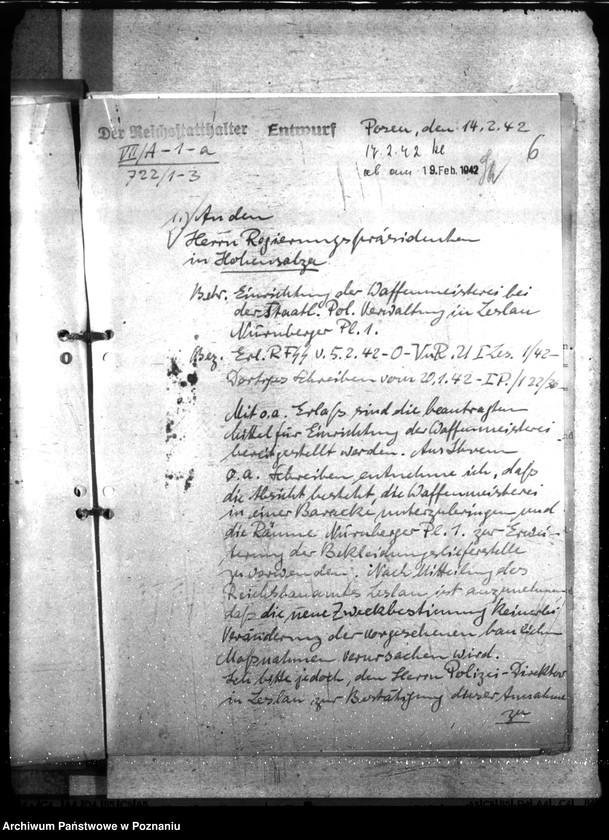 Der Reichsstatthalter Entwurf Posen, den 14.2.42
VII/A-1-a
722/1-3
17.2.42
ab am 19. Feb. 1942
6
1.) An den
Herrn Regierungspräsidenten
in Hohensalza
Betr. Einrichtung der Waffenmeisterei bei
der Staatl. Pol. Verwaltung in Leslau
Nürnberger Pl. 1.
Bez. Erl. RFSS v. 5.2.42-O-VuR.
Dortiges Schreiben vom 20.1.42-I P./122/
Mit o.a. Erlaß sind die beantragten
Mittel für Einrichtung der Waffenmeisterei
bereitgestellt worden. Aus Ihrem
o.a. Schreiben entnehme ich, daß
die Absicht besteht, die Waffenmeisterei
in einer Baracke unterzubringen und
die Räume Nürnberger Pl. 1. zur Erwei-
terung der Bekleidungslieferstelle
zu verwenden. Nach Mitteilung des
Reichsbauamtes Leslau ist anzunehmen
daß die neue Zweckbestimmung keinerlei
Veränderung der vorgesehenen baulichen
Maßnahmen verursachen wird.
Ich bitte jedoch, den Herrn Polizei-Direktor
in Leslau zur Bestätigung dieser Annahme
zu
Archiwum Państwowe w Poznaniu